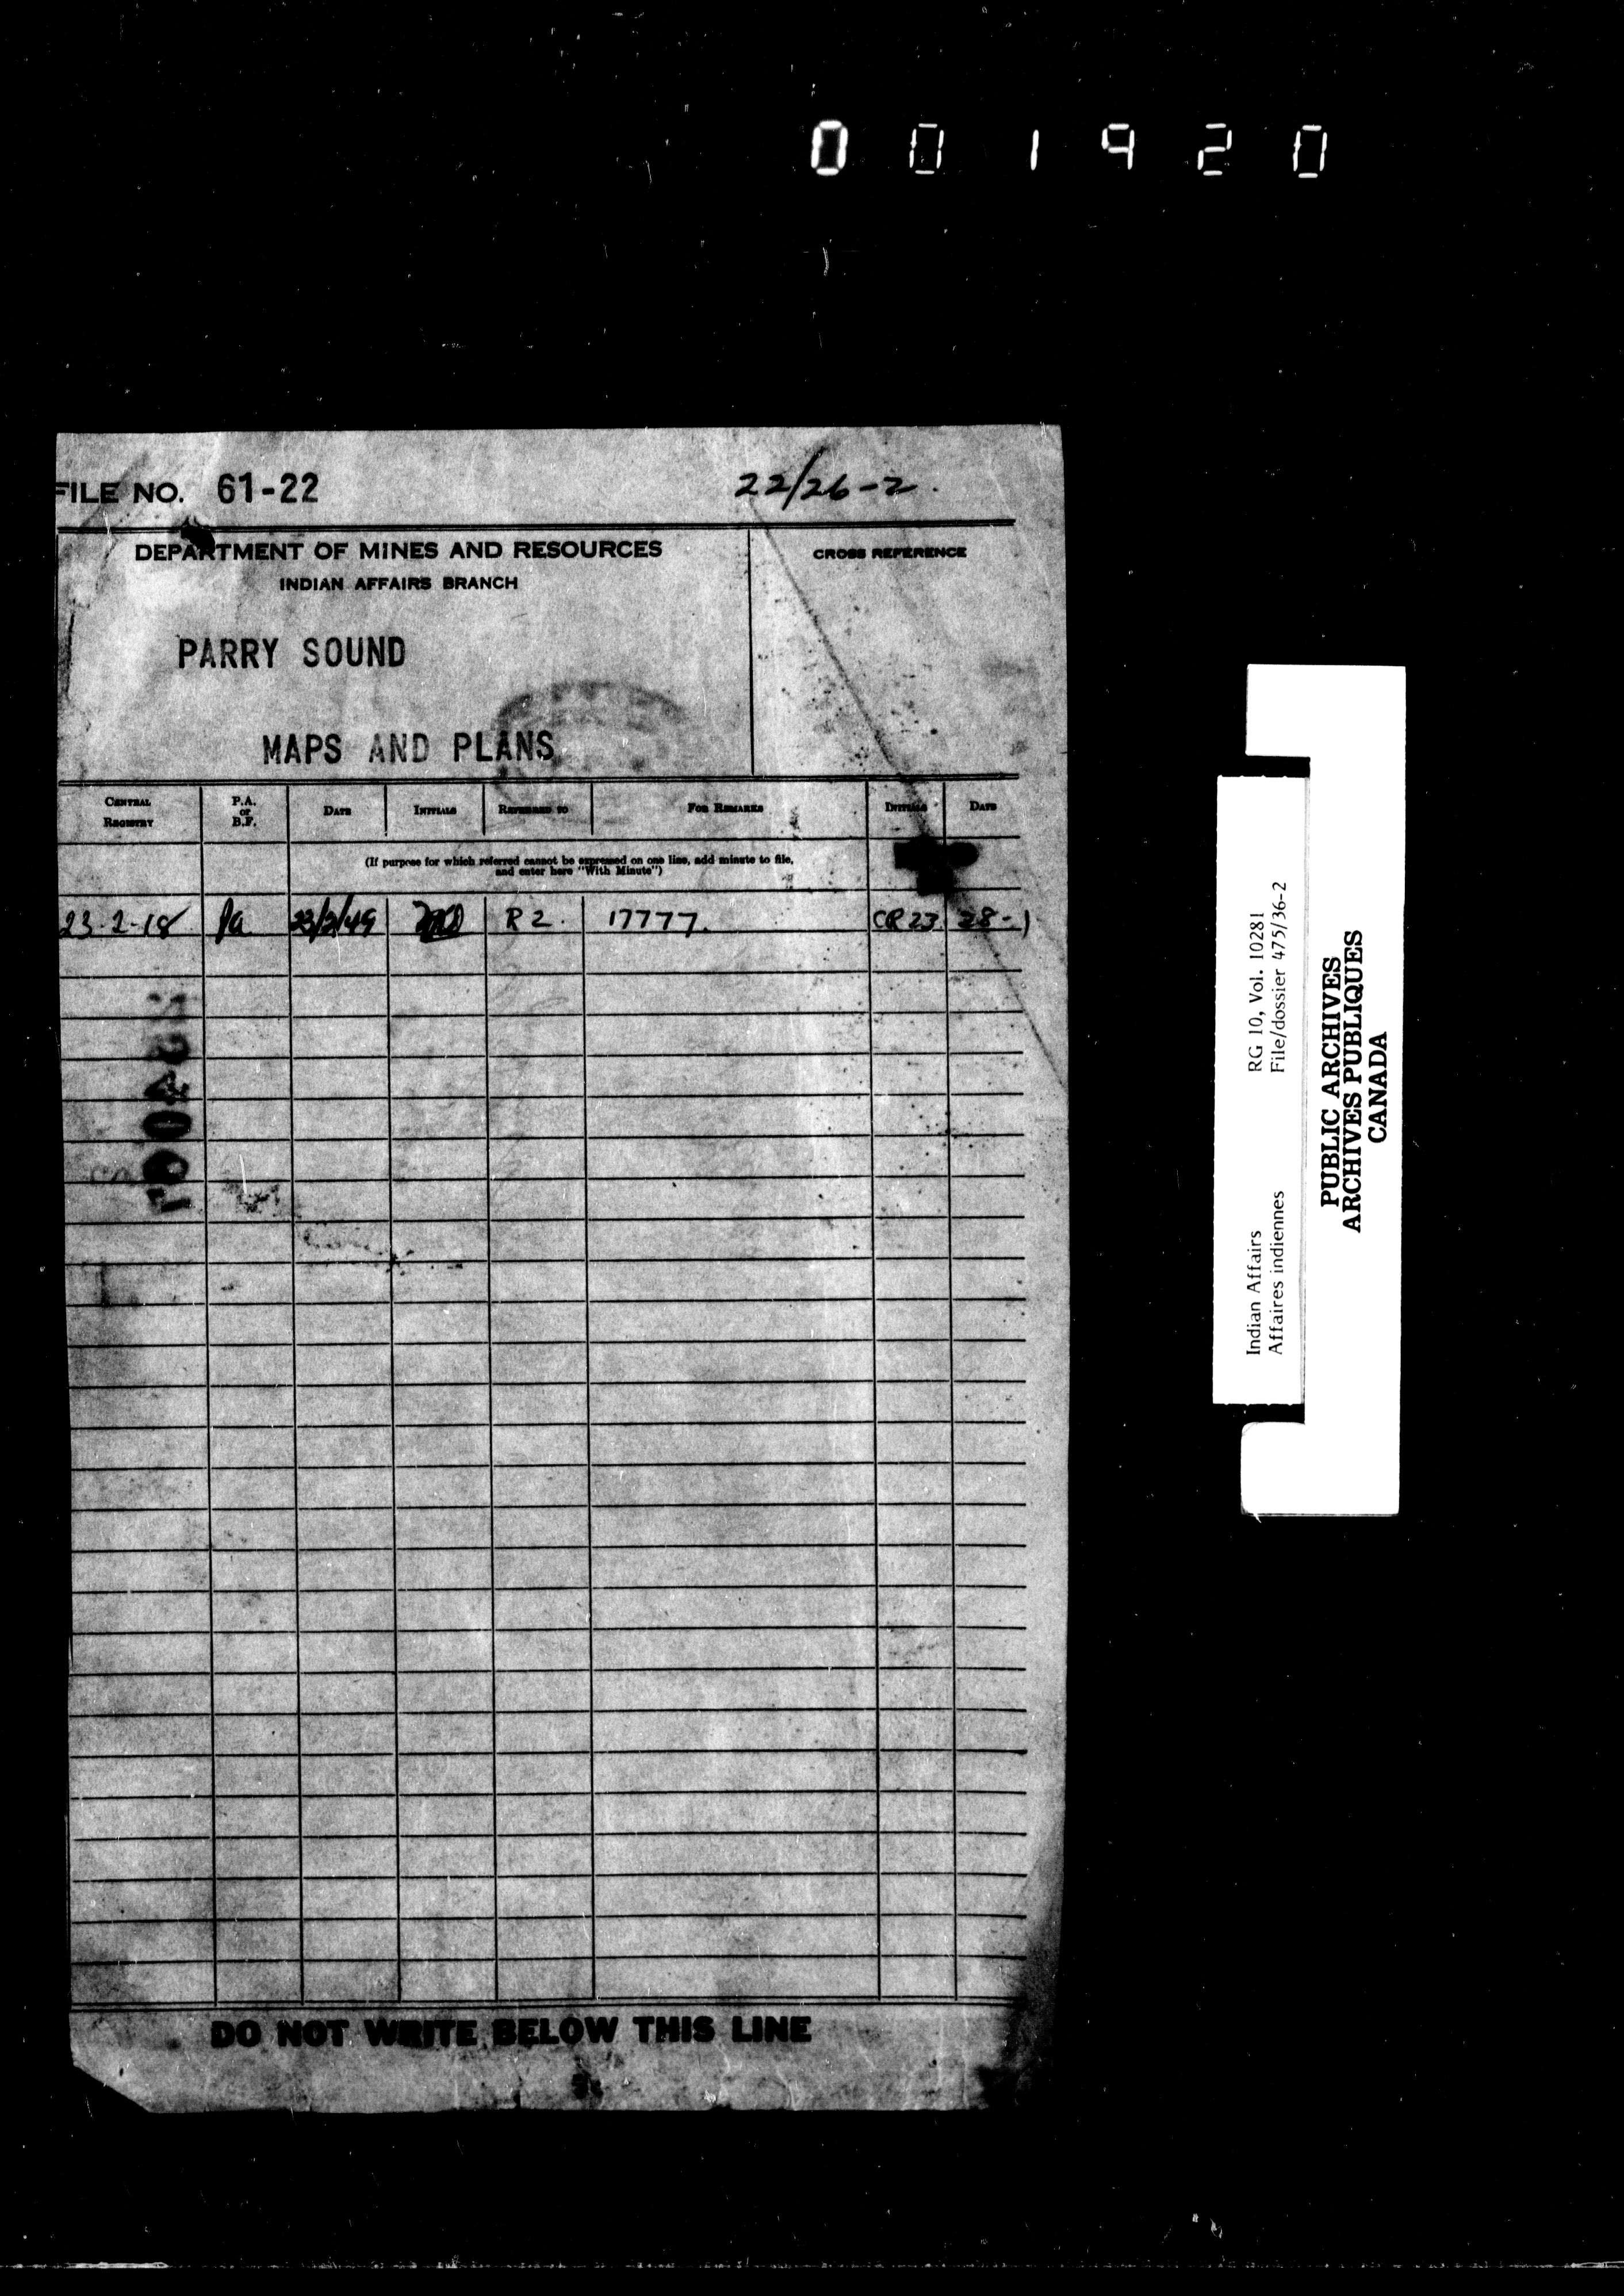 001920
FILE NO. 61-22
22/26-2.
DEPARTMENT OF MINES AND RESOURCES
INDIAN AFFAIRS BRANCH
CROSS REFERENCE
PARRY SOUND
MAPS AND PLANS
CENTRAL REGISTRY P.A. OR B.F. DATE INITIALS REFERRED TO FOR REMARKS INITIALS DATE
(If purpose for which referred cannot be expressed on one line, add minute to file,
and enter here "With Minute")
23-2-18 Pa 23/2/49 R2. 17777. CR23 28-1
DO NOT WRITE BELOW THIS LINE
Indian Affairs RG 10, Vol. 10281
Affaires indiennes File/dossier 475/36-2
PUBLIC ARCHIVES
ARCHIVES PUBLIQUES
CANADA